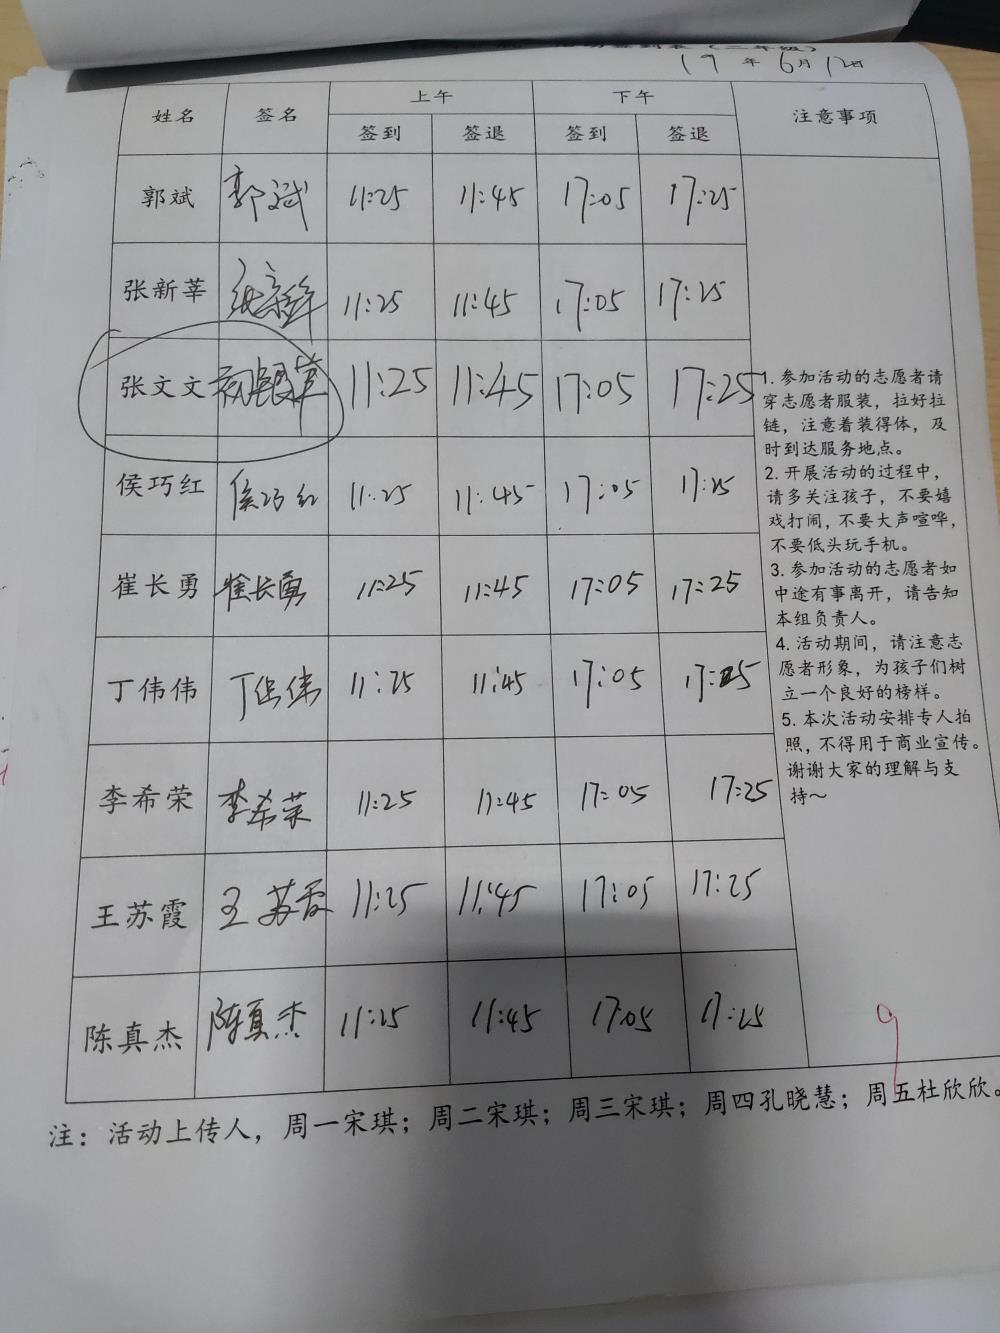 19年6月12日
姓名 签名 上午 下午 注意事项
签到 签退 签到 签退
郭斌 郭斌 11:25 11:45 17:05 17:25
张新莘 张新莘 11:25 11:45 17:05 17:25
张文文 11:25 11:45 17:05 17:25
侯巧红 侯巧红 11:25 11:45 17:05 17:25
崔长勇 崔长勇 11:25 11:45 17:05 17:25
丁伟伟 丁伟伟 11:25 11:45 17:05 17:25
李希荣 李希荣 11:25 11:45 17:05 17:25
王苏霞 王苏霞 11:25 11:45 17:05 17:25
陈真杰 陈真杰 11:25 11:45 17:05 17:25
1. 参加活动的志愿者请
穿志愿者服装，拉好拉
链，注意着装得体，及
时到达服务地点。
2. 开展活动的过程中，
请多关注孩子，不要嬉
戏打闹，不要大声喧哗，
不要低头玩手机。
3. 参加活动的志愿者如
中途有事离开，请告知
本组负责人。
4. 活动期间，请注意志
愿者形象，为孩子们树
立一个良好的榜样。
5. 本次活动安排专人拍
照，不得用于商业宣传。
谢谢大家的理解与支
持～
9
注：活动上传人，周一宋琪；周二宋琪；周三宋琪；周四孔晓慧；周五杜欣欣。